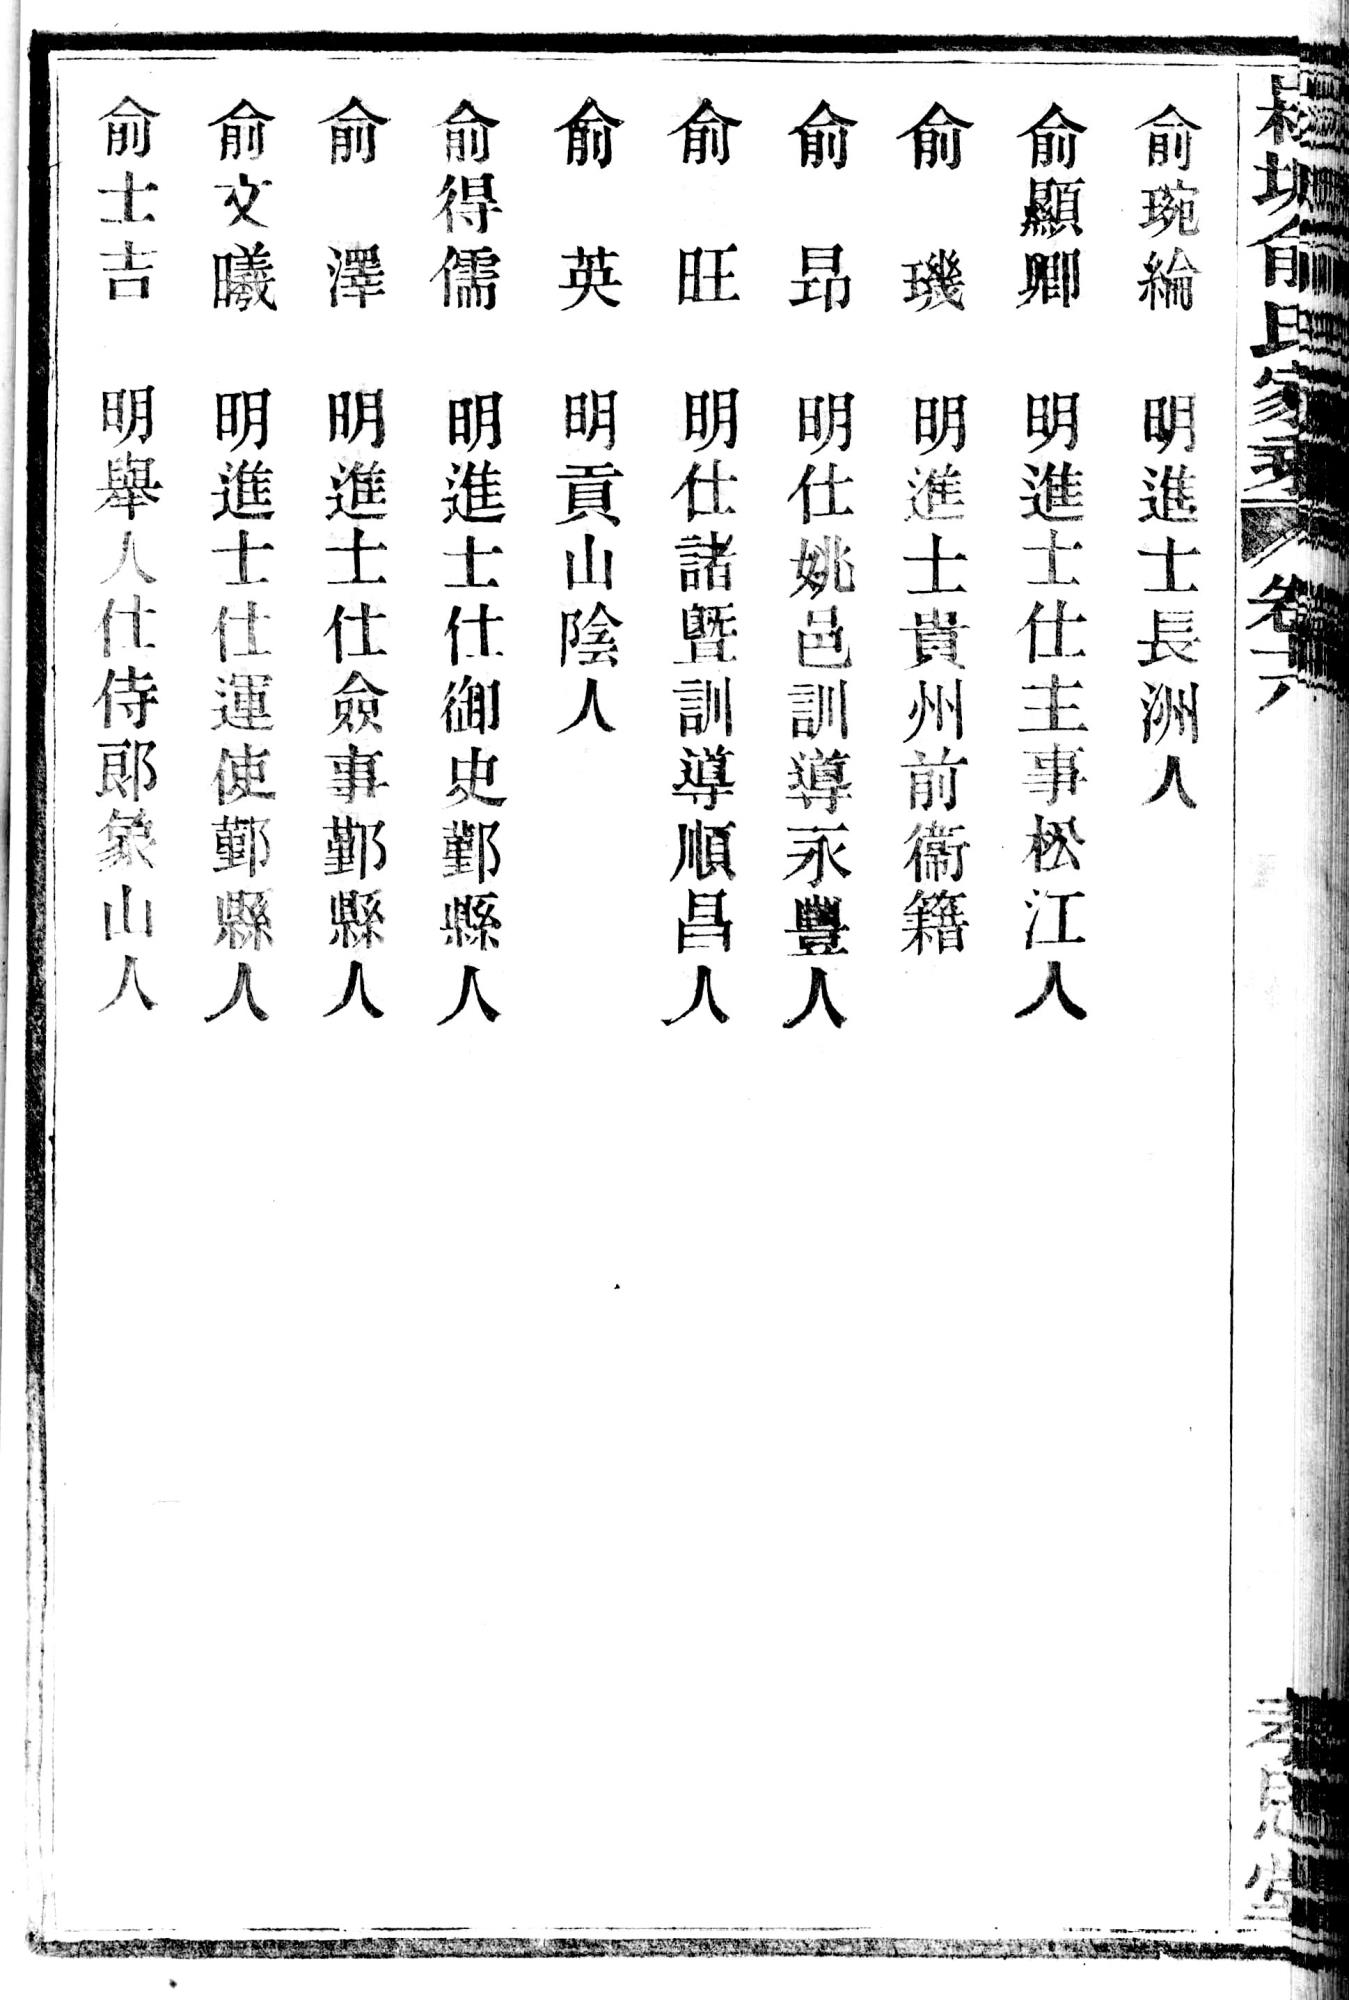 俞琬綸 明進士長洲人
俞顯卿 明進士仕主事松江人
俞 璣 明進士貴州前衞籍
俞 昂 明仕姚邑訓導永豐人
俞 旺 明仕諸曁訓導順昌人
俞 英 明貢山陰人
俞得儒 明進士仕御史鄞縣人
俞 澤 明進士仕僉事鄞縣人
俞文曦 明進士仕運使鄞縣人
俞士吉 明舉人仕侍郎象山人
俞氏家乘 卷
孝思堂